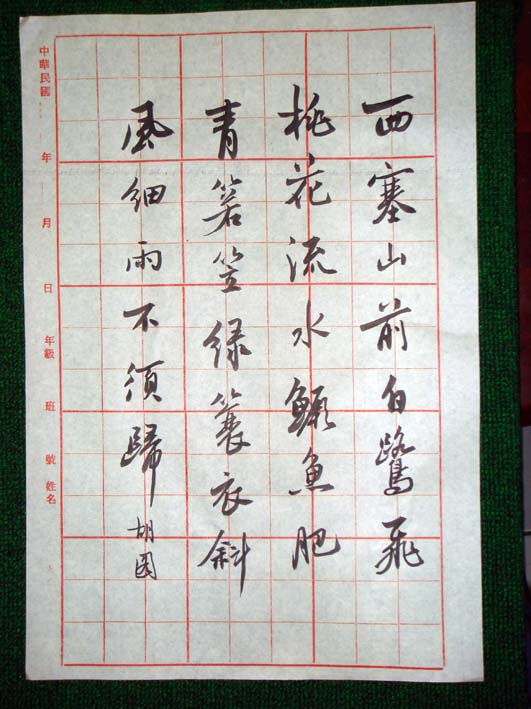 西塞山前白鷺飛
桃花流水鱖魚肥
青箬笠綠簑衣斜
風細雨不須歸
中華民國 年 月 日 年級 班 號 姓名